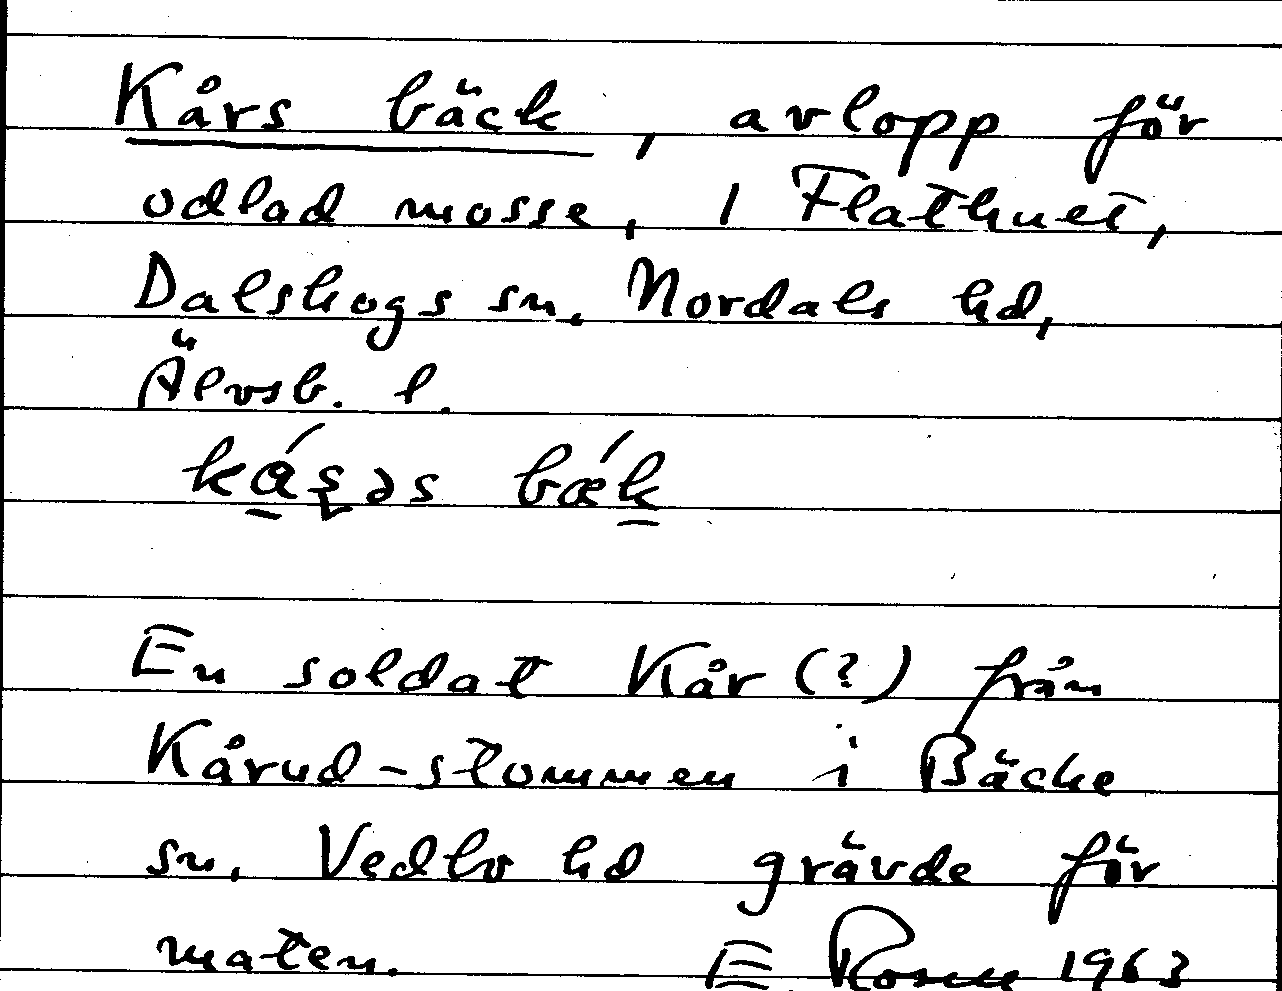 Kårs bäck, avlopp för
odlad mosse, i Flathuet,
Dalskogs sn. Nordals hd,
Älvsb. l.
En soldat Kår (?) från
Kårud-stommen i Bäcke
sn. Vedbo hd grävde för
maten. E Rosell 1963